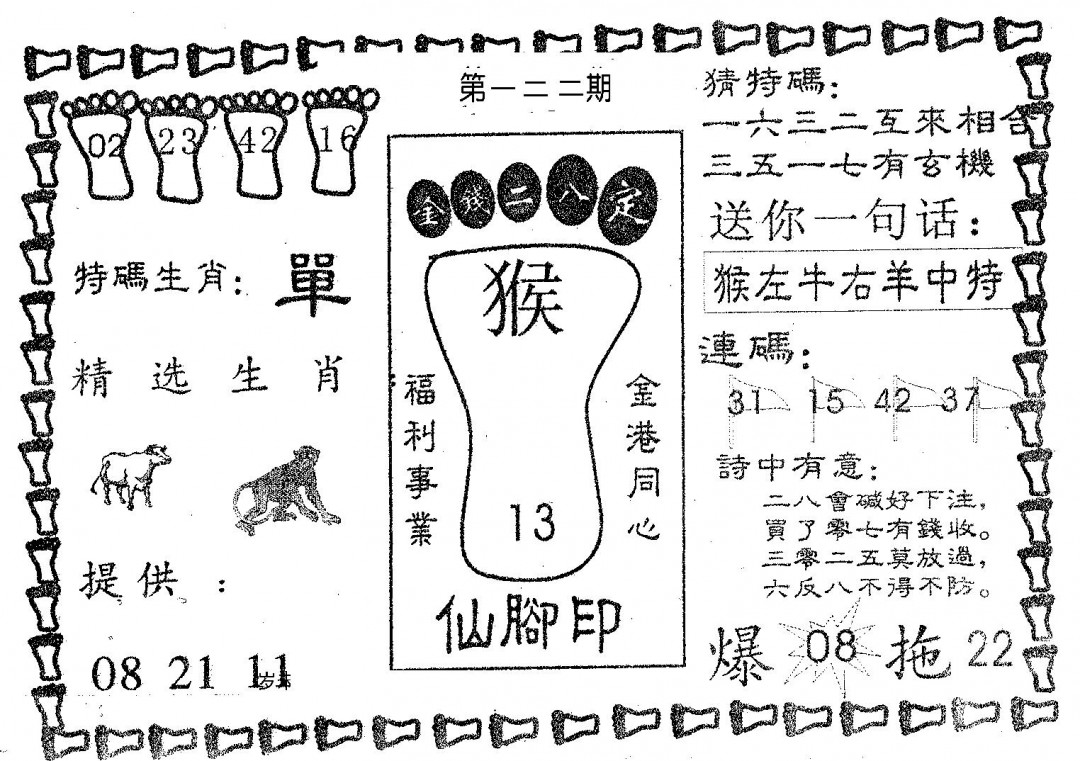 第一二二期
02 23 42 16
特碼生肖：單
精选生肖
提供：
08 21 11
金錢二八定
猴
福利事業
金港同心
13
仙腳印
猜特碼：
一六三二互來相合
三五一七有玄機
送你一句话：
猴左牛右羊中特
連碼：
31 15 42 37
詩中有意：
二八會碱好下注，
買了零七有錢收。
三零二五莫放過，
六反八不得不防。
爆 08 拖 22